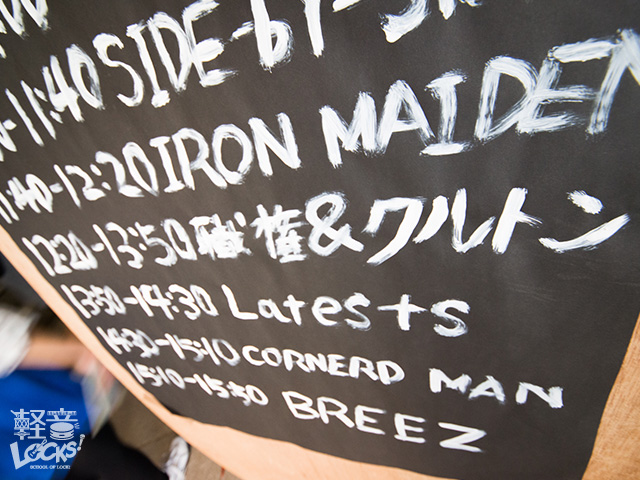 11:40 SIDE-BY-S
11:40-12:20 IRON MAIDEN
12:20-13:50 職権&クルトン
13:50-14:30 Latests
14:30-15:10 CORNERD MAN
15:10-15:50 BREEZ
軽音
LOCKS!
SCHOOL OF LOCK!